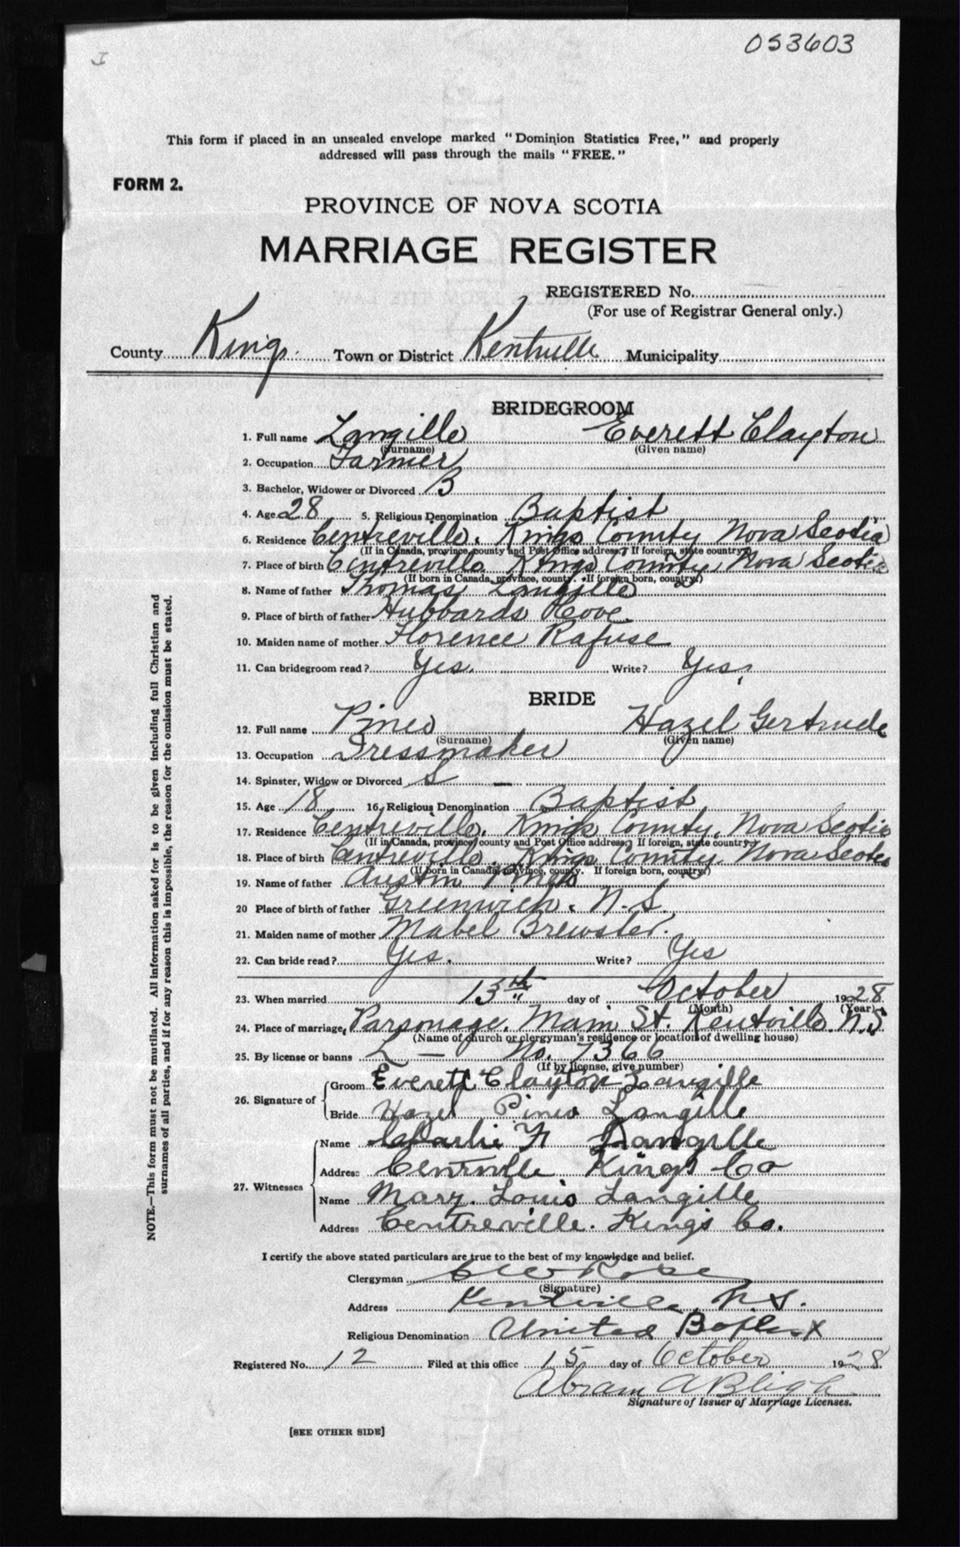 053603
This form if placed in an unsealed envelope marked "Dominion Statistics Free," and properly
addressed will pass through the mails "FREE."
FORM 2.
PROVINCE OF NOVA SCOTIA
MARRIAGE REGISTER
REGISTERED No.
(For use of Registrar General only.)
County Kings. Town or District Kentville Municipality
BRIDEGROOM
1. Full name Langille Everett Clayton
(Surname) (Given name)
2. Occupation Farmer
3. Bachelor, Widower or Divorced B
4. Age 28 5. Religious Denomination Baptist
6. Residence Centreville. Kings County Nova Scotia
(If in Canada, province, county and Post Office address. If foreign, state country.)
7. Place of birth Centreville Kings County, Nova Scotia
(If born in Canada, province, county. If foreign born, country.)
8. Name of father Thomas Langille
9. Place of birth of father Hubbards Cove
10. Maiden name of mother Florence Rafuse
11. Can bridegroom read? Yes. Write? Yes.
BRIDE
12. Full name Pineo Hazel Gertrude
(Surname) (Given name)
13. Occupation Dressmaker
14. Spinster, Widow or Divorced S —
15. Age 18 16. Religious Denomination Baptist
17. Residence Centreville. Kings County. Nova Scotia
(If in Canada, province, county and Post Office address. If foreign, state country.)
18. Place of birth Centreville. Kings County. Nova Scotia
(If born in Canada, province, county. If foreign born, country.)
19. Name of father Austin Pineo
20 Place of birth of father Greenwich. N.S
21. Maiden name of mother Mabel Brewster.
22. Can bride read? Yes. Write? Yes
23. When married 13th day of October 1928
(Month) (Year)
24. Place of marriage, Parsonage. Main St. Kentville N.S
(Name of church or clergyman's residence or location of dwelling house)
25. By license or banns L — No. 7366
(If by license, give number)
26. Signature of
Groom Everett Clayton Langille
Bride Hazel Pineo Langille
27. Witnesses
Name Charlie Langille
Address Centrville Kings Co
Name Mary. Louis Langille
Address Centreville. Kings Co.
I certify the above stated particulars are true to the best of my knowledge and belief.
Clergyman C W Rose
(Signature)
Address Kentville, N.S.
Religious Denomination United Baptist
Registered No. 12 Filed at this office 15 day of October 1928
Abram A Bligh
Signature of Issuer of Marriage Licenses.
[SEE OTHER SIDE]
NOTE.—This form must not be mutilated. All information asked for is to be given including full Christian and
surnames of all parties, and if for any reason this is impossible, the reason for the omission must be stated.